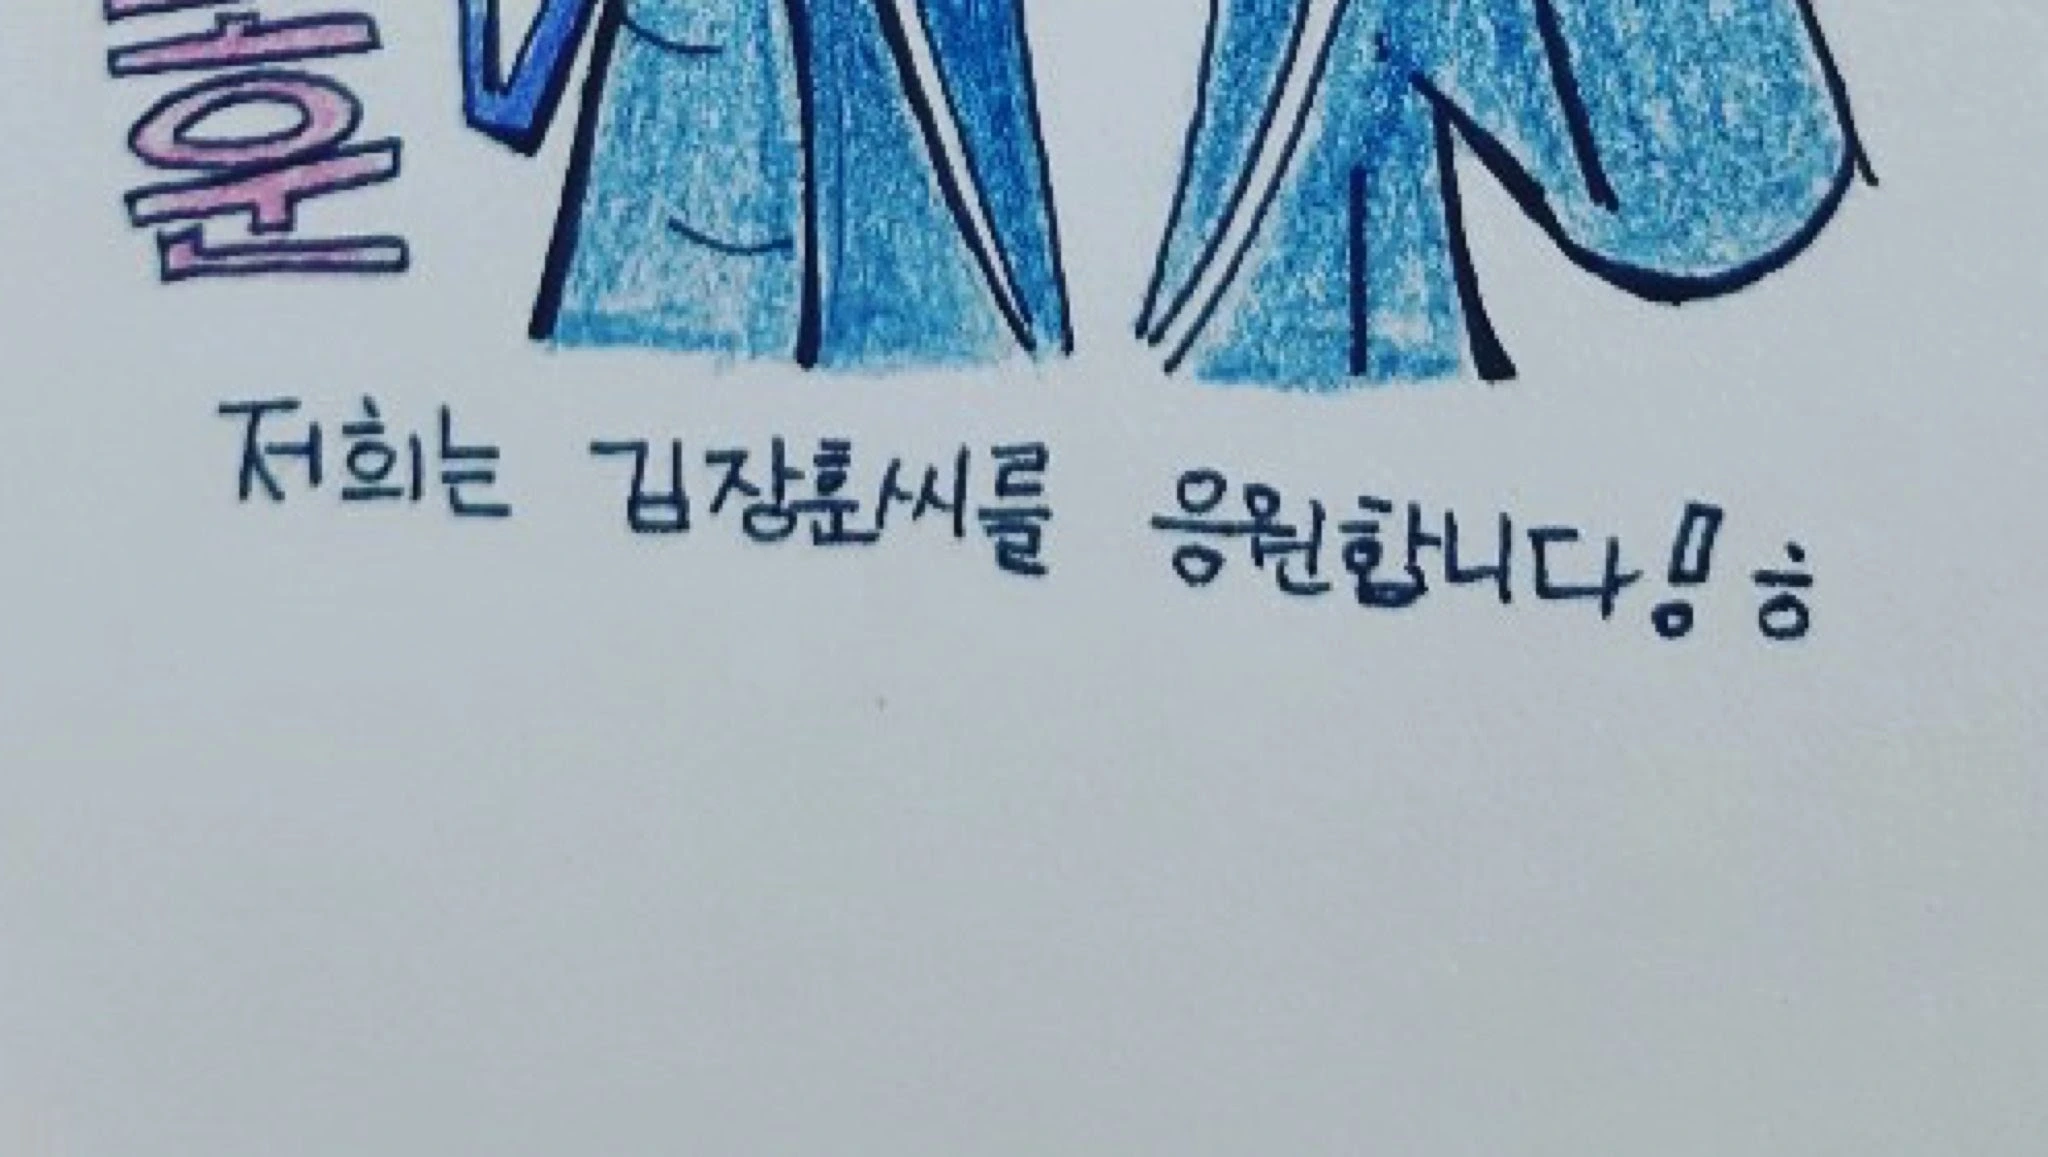 저희는 김장훈씨를 응원합니다! ㅎ